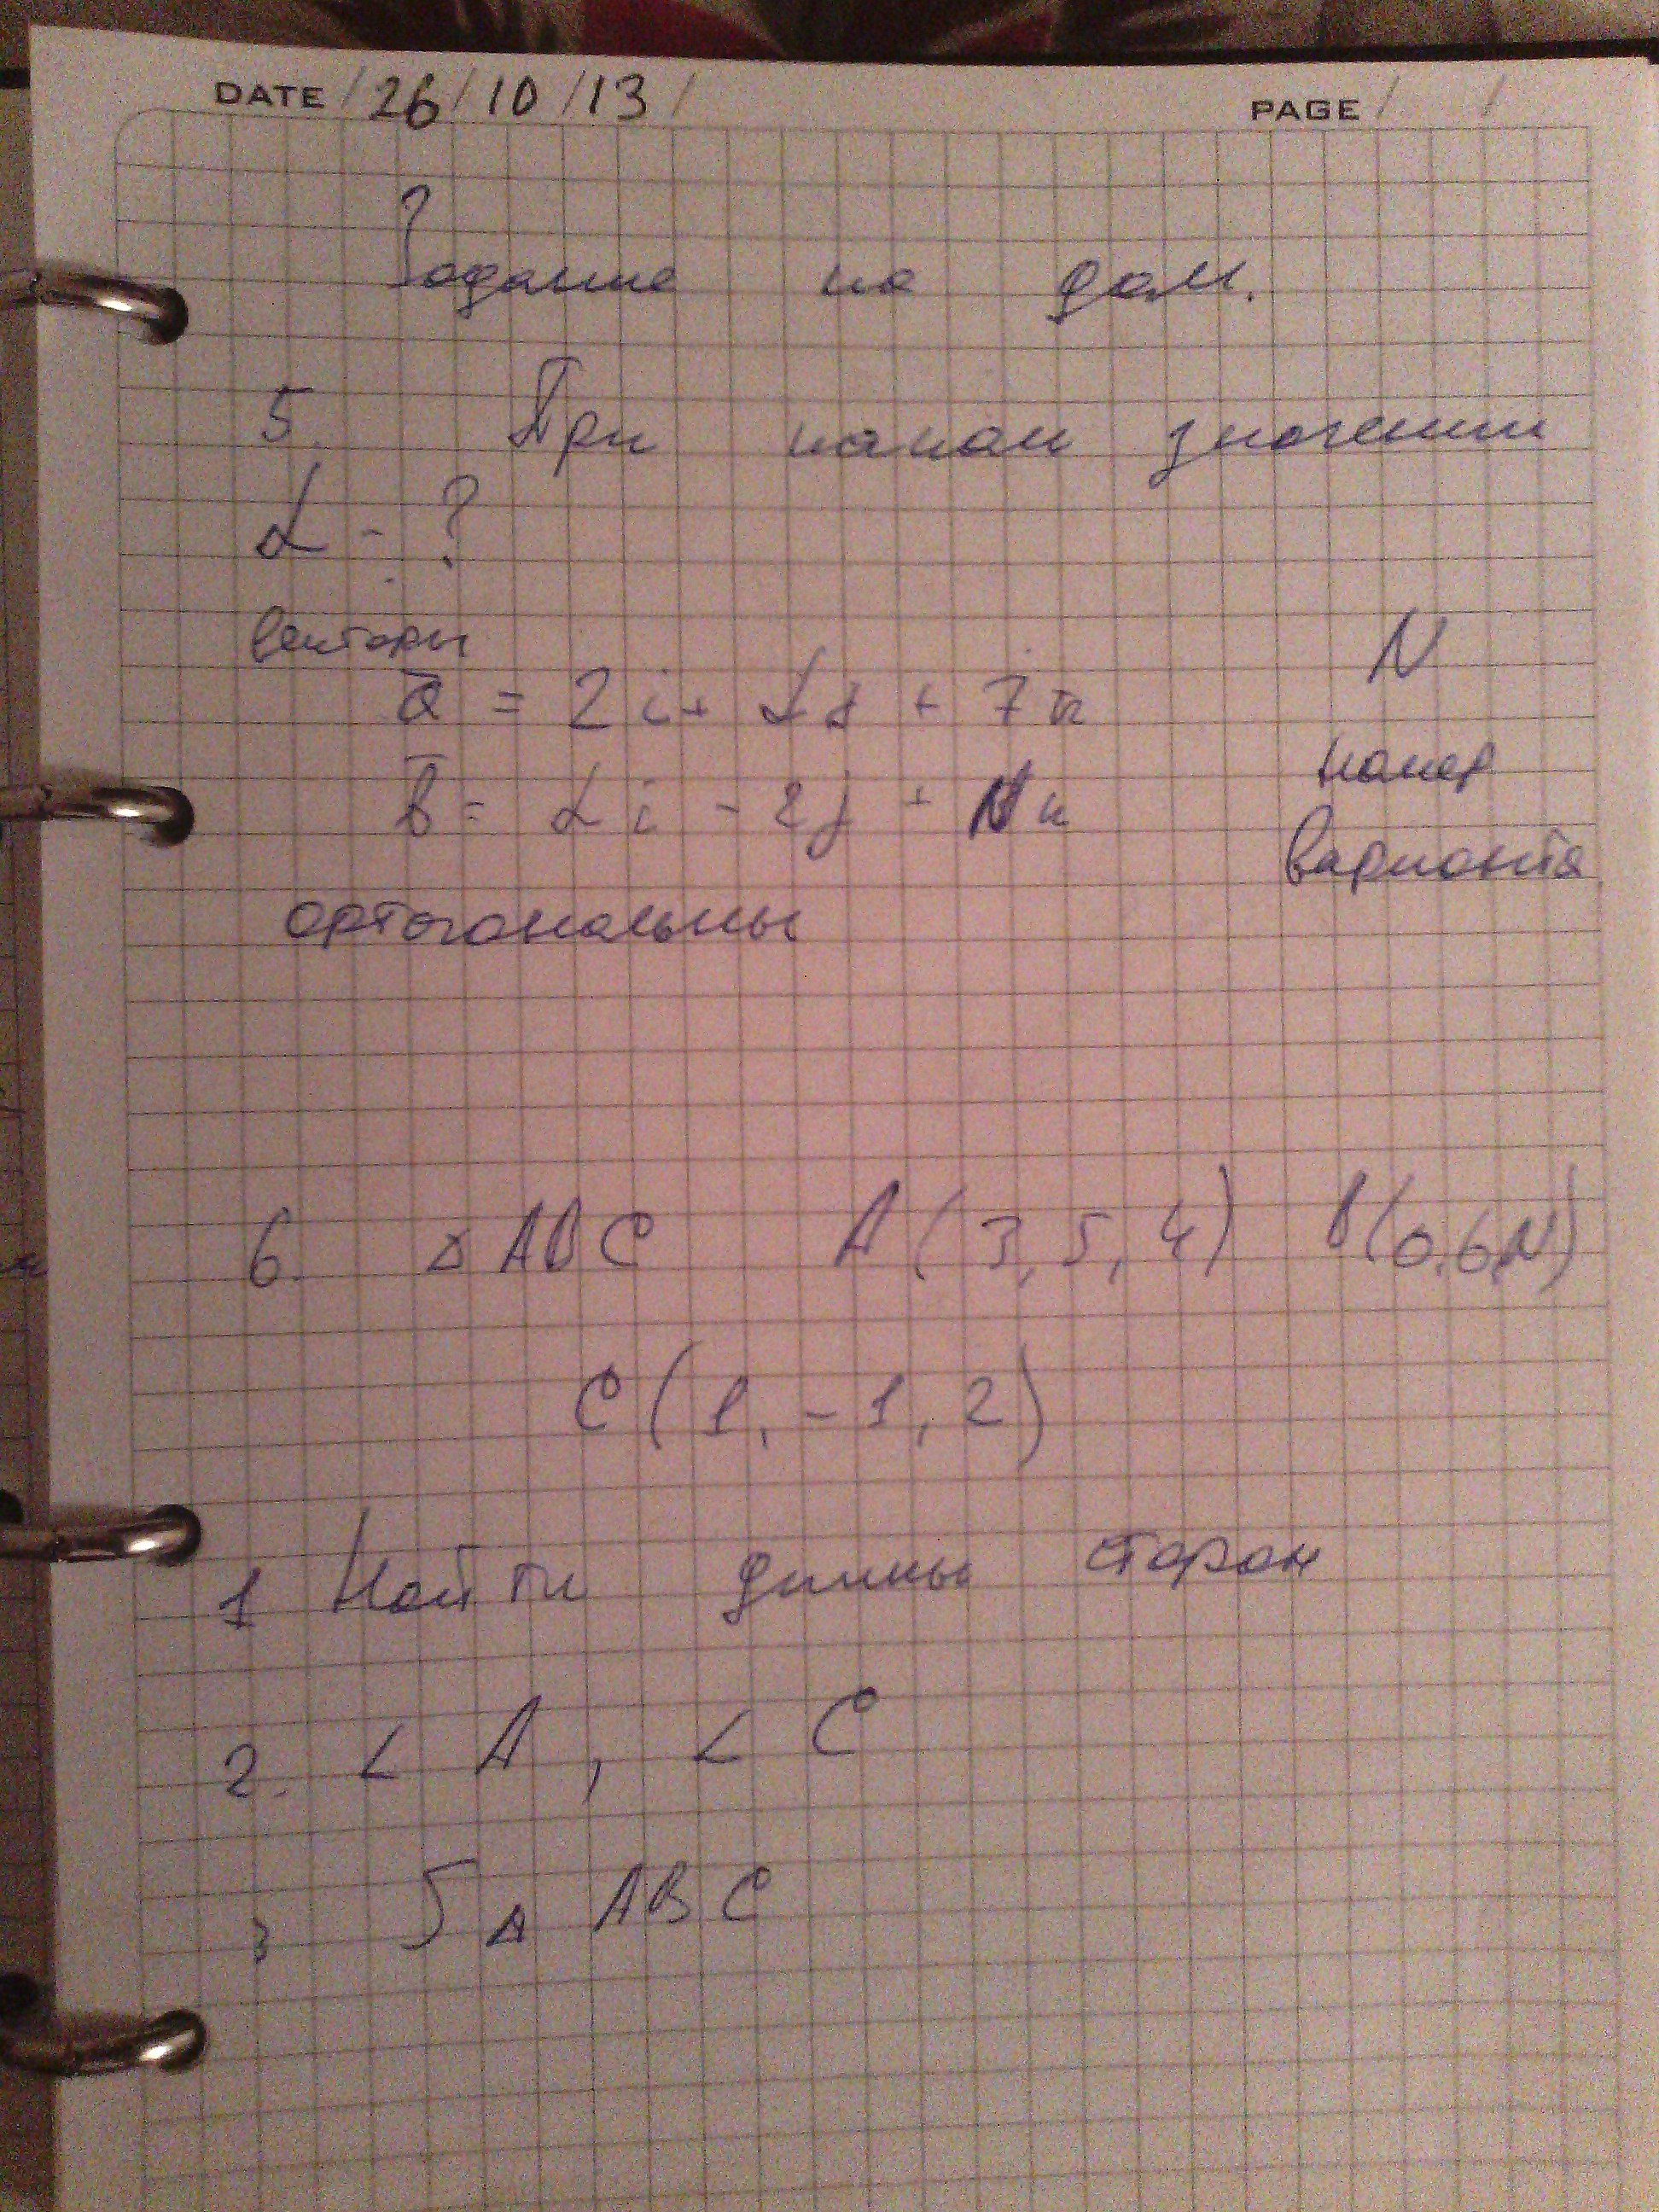 DATE / 26 / 10 / 13 / PAGE / /
Задание на дом.
5. При каком значении
α - ?
векторы
a̅ = 2i + αj + 7k
b̅ = αi - 2j + Nk
N
номер
варианта
ортогональны
6. △ABC A(3, 5, 4) B(0,6,N)
C(1, -1, 2)
1 Найти длины сторон
2. ∠ A, ∠ C
3 S△ ABC